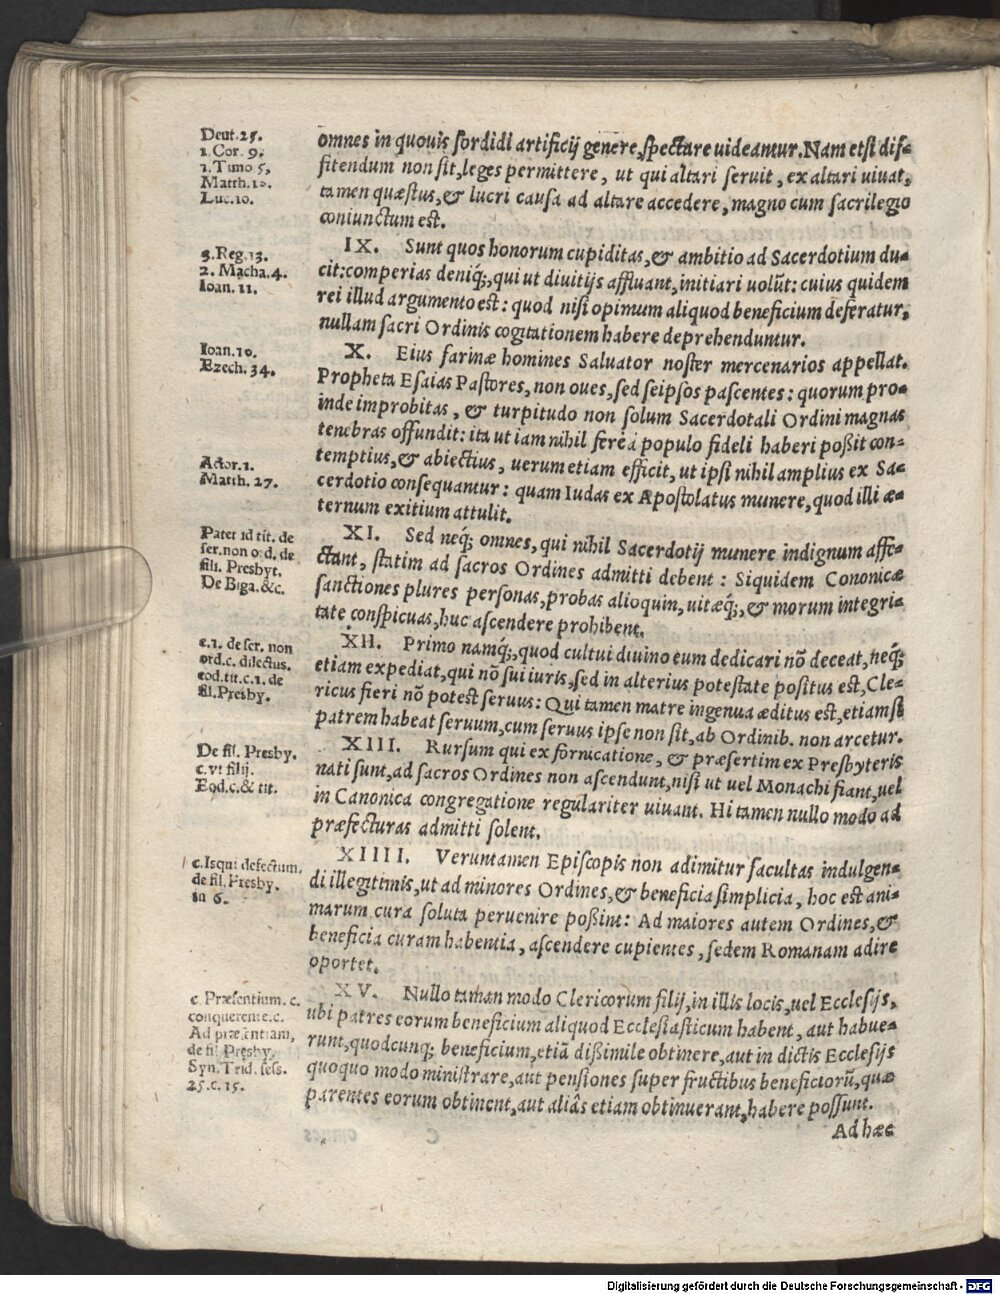 Deut.25.
1.Cor. 9.
1.Timo 5,
Matth.10.
Luc.10.
omnes in quouis sordidi artificij genere, spectare uideantur. Nam etsi dif-
fitendum non sit, leges permittere, ut qui altari seruit, ex altari uiuat,
tamen quæstus, & lucri causa ad altare accedere, magno cum sacrilegio
coniunctum est.
3.Reg.13.
2. Macha.4.
Ioan. 11.
IX. Sunt quos honorum cupiditas, & ambitio ad Sacerdotium du-
cit: comperias deniq;, qui ut diuitijs affluant, initiari uolūt: cuius quidem
rei illud argumento est: quod nisi opimum aliquod beneficium deferatur,
nullam sacri Ordinis cogitationem habere deprehenduntur.
Ioan.10.
Ezech. 34.
X. Eius farinæ homines Saluator noster mercenarios appellat.
Propheta Esaias Pastores, non oues, sed seipsos pascentes: quorum pro-
inde improbitas, & turpitudo non solum Sacerdotali Ordini magnas
tenebras offundit: ita ut iam nihil ferè à populo fideli haberi poßit con-
temptius, & abiectius, uerum etiam efficit, ut ipsi nihil amplius ex Sa-
cerdotio consequantur: quam Iudas ex Apostolatus munere, quod illi æ-
ternum exitium attulit.
Actor.1.
Matth. 27.
Pater id tit. de
ser.non ord. de
fili. Presbyt.
De Biga.&c.
XI. Sed neq; omnes, qui nihil Sacerdotij munere indignum affe-
ctant, statim ad sacros Ordines admitti debent: Siquidem Cononicæ
sanctiones plures personas, probas alioquin, uitæq;, & morum integri-
tate conspicuas, huc ascendere prohibent.
c.1. de ser. non
ord.c. dilectus.
eod.tit.c.1. de
fil.Presby.
XII. Primo namq;, quod cultui diuino eum dedicari nō deceat, neq;
etiam expediat, qui nō sui iuris, sed in alterius potestate positus est, Cle-
ricus fieri nō potest seruus: Qui tamen matre ingenua æditus est, etiamsi
patrem habeat seruum, cum seruus ipse non sit, ab Ordinib. non arcetur.
De fil. Presby.
c.vt filij.
Eod.c.& tit.
XIII. Rursum qui ex fornicatione, & præsertim ex Presbyteris
nati sunt, ad sacros Ordines non ascendunt, nisi ut uel Monachi fiant, uel
in Canonica congregatione regulariter uiuant. Hi tamen nullo modo ad
præfecturas admitti solent.
c.Isqui defectum.
de fil. Presby.
in 6.
XIIII. Veruntamen Episcopis non adimitur facultas indulgen-
di illegitimis, ut ad minores Ordines, & beneficia simplicia, hoc est ani-
marum cura soluta peruenire poßint: Ad maiores autem Ordines, &
beneficia curam habentia, ascendere cupientes, sedem Romanam adire
oportet.
c. Præsentium. c.
conquerente.c.
Ad præsentiam,
de fil. Presby.
Syn.Trid. sess.
25.c.15.
XV. Nullo taman modo Clericorum filij, in illis locis, uel Ecclesijs,
ubi patres eorum beneficium aliquod Ecclesiasticum habent, aut habue-
runt, quodcunq; beneficium, etiā dißimile obtinere, aut in dictis Ecclesijs
quoquo modo ministrare, aut pensiones super fructibus beneficiorū, quæ
parentes eorum obtinent, aut aliâs etiam obtinuerant, habere possunt.
Ad hæc
Digitalisierung gefördert durch die Deutsche Forschungsgemeinschaft - DFG